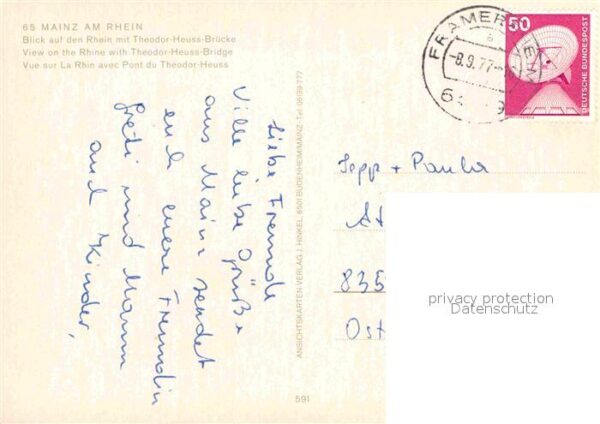 65 MAINZ AM RHEIN
Blick auf den Rhein mit Theodor-Heuss-Brücke
View on the Rhine with Theodor-Heuss-Bridge
Vue sur La Rhin avec Pont du Theodor-Heuss
Liebe Freunde
Viele liebe Grüße
aus Mainz sendet
euch eure Freundin
Gredi und Mann
auch Kinder,
ANSICHTSKARTEN-VERLAG J. HINKEL, 6501 BUDENHEIM/MAINZ
591
-8.9.77
50
DEUTSCHE BUNDESPOST
Sepp + Paula
835
Ost
privacy protection
Datenschutz